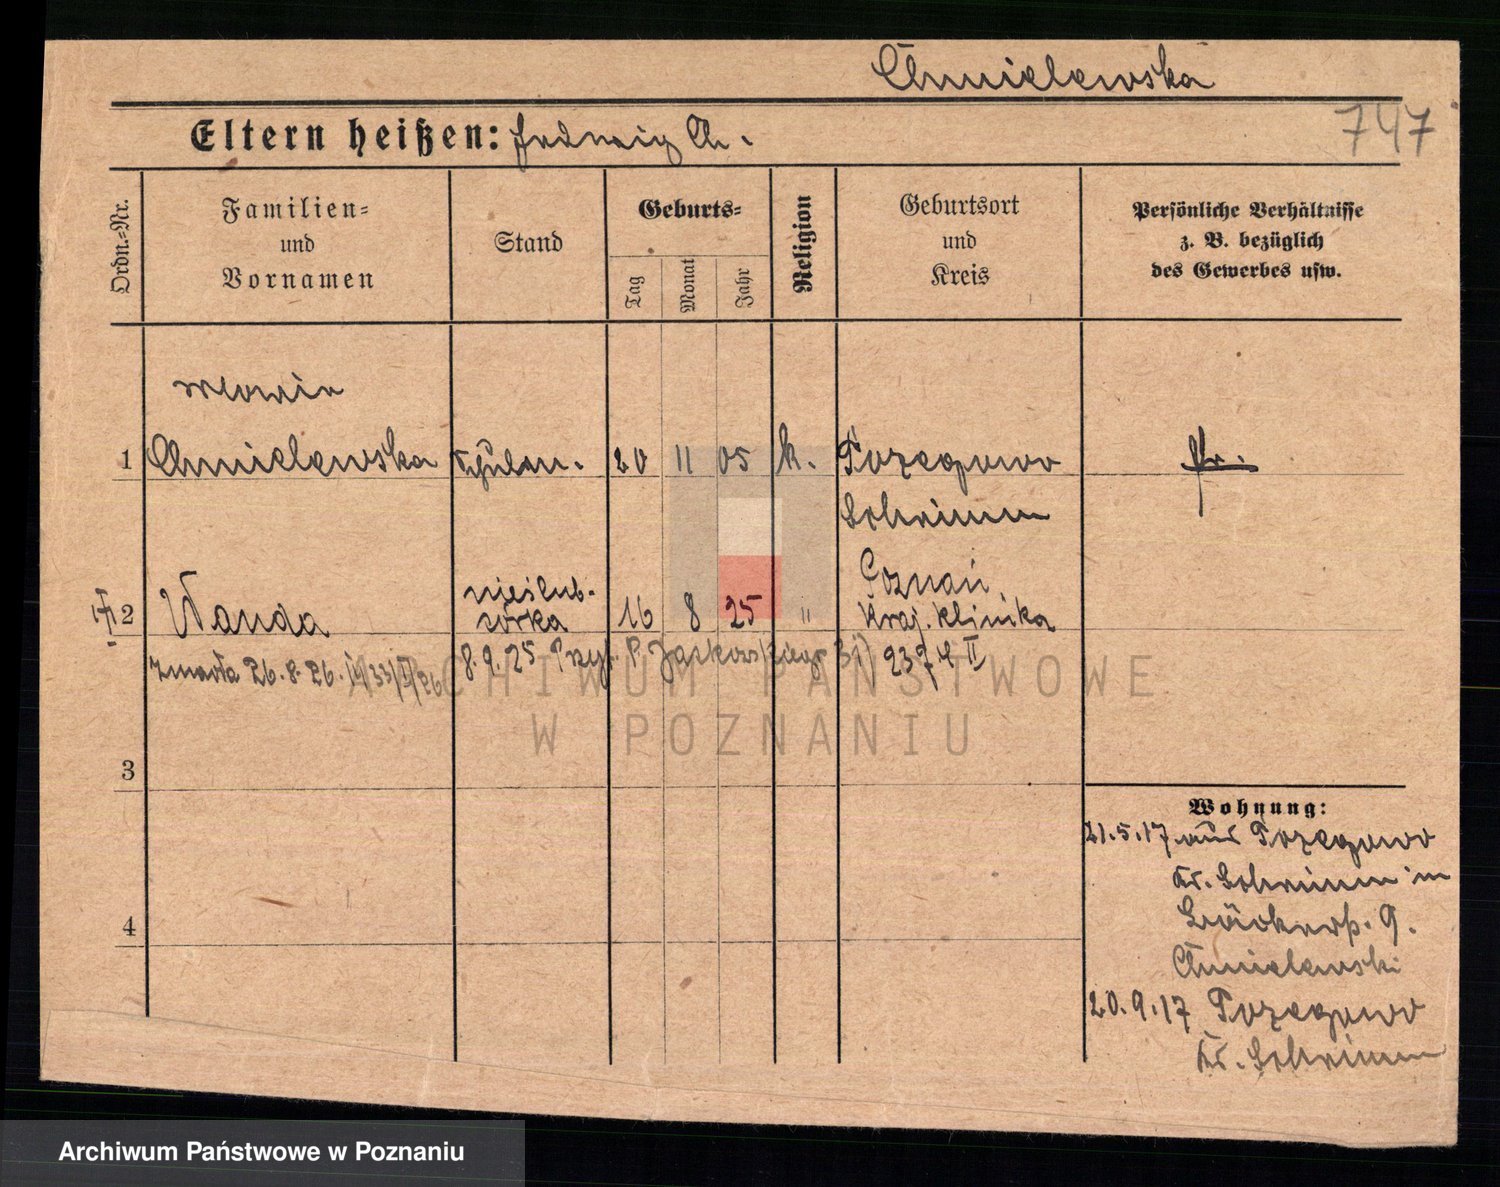 Chmielewska
747
Eltern heißen: Jadwig Ch.
Ordn.-Nr.
Familien-
und
Vornamen
Stand
Geburts-
Tag
Monat
Jahr
Religion
Geburtsort
und
Kreis
Persönliche Verhältnisse
z. B. bezüglich
des Gewerbes usw.
Maria
1 Chmielewska 20 11 05 k. Pozegowo
Pr.
Schrimm
2 Wanda nieślub. córka 16 8 25 " Poznań
Kraj. Klinika
zmarła 26.8.26.
8.9.25
ARCHIWUM PAŃSTWOWE
W POZNANIU
3
4
Wohnung:
21.5.17 aus Pozegowo
Kr. Schrimm in
Bäckerstr. 9.
Chmielewski
20.9.17 Pozegowo
Kr. Schrimm
Archiwum Państwowe w Poznaniu